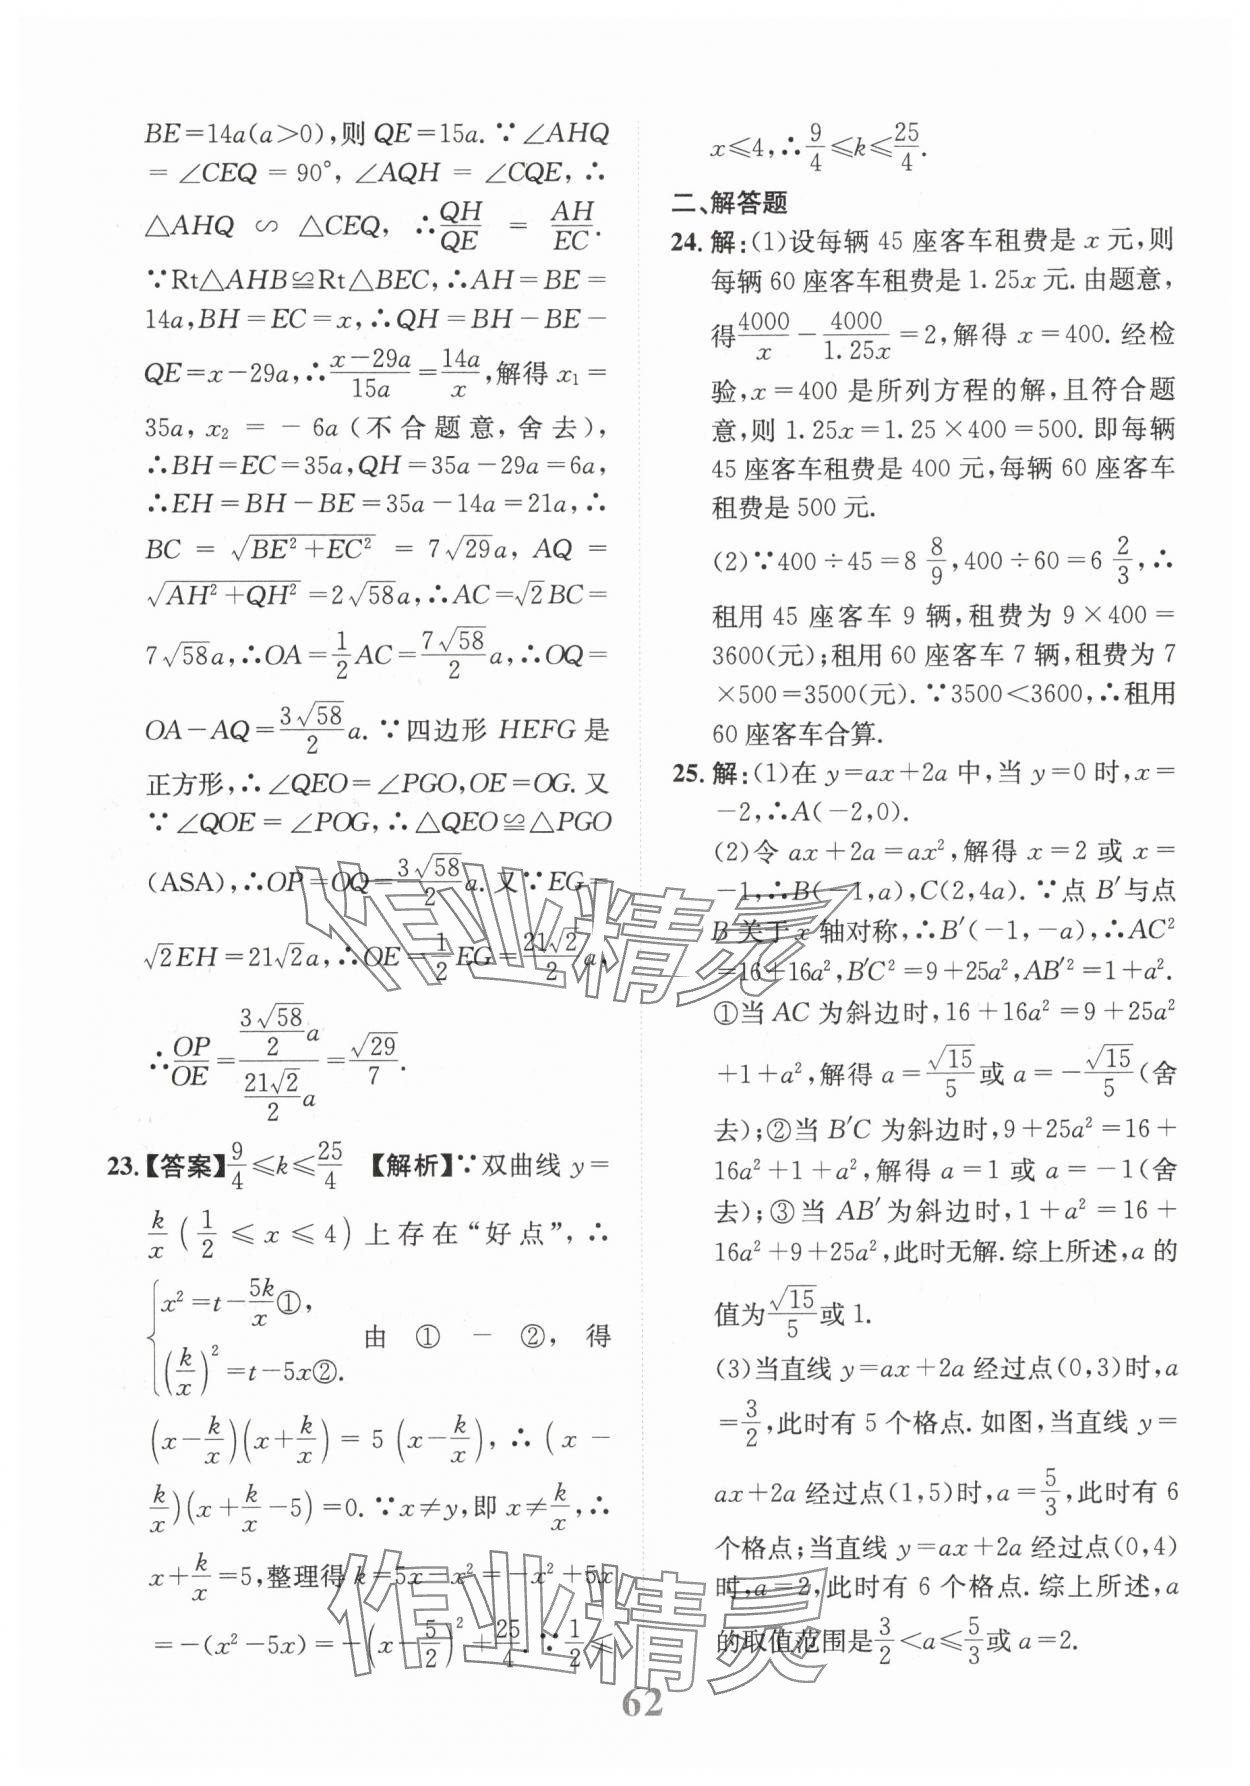 BE=14a(a>0),则 QE=15a. ∵∠AHQ
=∠CEQ=90°,∠AQH=∠CQE,∴
△AHQ∽△CEQ,∴QH/QE=AH/EC.
∵Rt△AHB≌Rt△BEC,∴AH=BE=
14a,BH=EC=x,∴QH=BH-BE-
QE=x-29a,∴(x-29a)/15a=14a/x,解得 x₁=
35a,x₂=-6a(不合题意,舍去),
∴BH=EC=35a,QH=35a-29a=6a,
∴EH=BH-BE=35a-14a=21a,∴
BC=√(BE²+EC²)=7√29a,AQ=
√(AH²+QH²)=2√58a,∴AC=√2BC=
7√58a,∴OA=1/2AC=7√58/2a,∴OQ=
OA-AQ=3√58/2a. ∵四边形 HEFG 是
正方形,∴∠QEO=∠PGO,OE=OG. 又
∵∠QOE=∠POG,∴△QEO≌△PGO
(ASA),∴OP=OQ=3√58/2a. 又∵EG=
√2EH=21√2a,∴OE=1/2EG=21√2/2a,
∴OP/OE=(3√58/2a)/(21√2/2a)=√29/7.
23.【答案】9/4≤k≤25/4 【解析】∵双曲线 y=
k/x(1/2≤x≤4)上存在“好点”,∴
{x²=t-5k/x①,
(k/x)²=t-5x②. 由①-②,得
(x-k/x)(x+k/x)=5(x-k/x),∴(x-
k/x)(x+k/x-5)=0. ∵x≠y,即 x≠k/x,∴
x+k/x=5,整理得 k=5x-x²=-x²+5x
=-(x²-5x)=-(x-5/2)²+25/4. ∵1/2≤
x≤4,∴9/4≤k≤25/4.
二、解答题
24. 解:(1)设每辆 45 座客车租费是 x 元,则
每辆 60 座客车租费是 1.25x 元. 由题意,
得4000/x-4000/1.25x=2,解得 x=400. 经检
验,x=400 是所列方程的解,且符合题
意,则 1.25x=1.25×400=500. 即每辆
45 座客车租费是 400 元,每辆 60 座客车
租费是 500 元.
(2)∵400÷45=8 8/9,400÷60=6 2/3,∴
租用 45 座客车 9 辆,租费为 9×400=
3600(元);租用 60 座客车 7 辆,租费为 7
×500=3500(元). ∵3500<3600,∴租用
60 座客车合算.
25. 解:(1)在 y=ax+2a 中,当 y=0 时,x=
-2,∴A(-2,0).
(2)令 ax+2a=ax²,解得 x=2 或 x=
-1,∴B(-1,a),C(2,4a). ∵点 B′与点
B 关于 x 轴对称,∴B′(-1,-a),∴AC²
=16+16a²,B′C²=9+25a²,AB′²=1+a².
①当 AC 为斜边时,16+16a²=9+25a²
+1+a²,解得 a=√15/5或 a=-√15/5(舍
去);②当 B′C 为斜边时,9+25a²=16+
16a²+1+a²,解得 a=1 或 a=-1(舍
去);③当 AB′为斜边时,1+a²=16+
16a²+9+25a²,此时无解. 综上所述,a 的
值为√15/5或 1.
(3)当直线 y=ax+2a 经过点(0,3)时,a
=3/2,此时有 5 个格点. 如图,当直线 y=
ax+2a 经过点(1,5)时,a=5/3,此时有 6
个格点;当直线 y=ax+2a 经过点(0,4)
时,a=2,此时有 6 个格点. 综上所述,a
的取值范围是3/2<a≤5/3或 a=2.
作业精灵
作业精灵
62